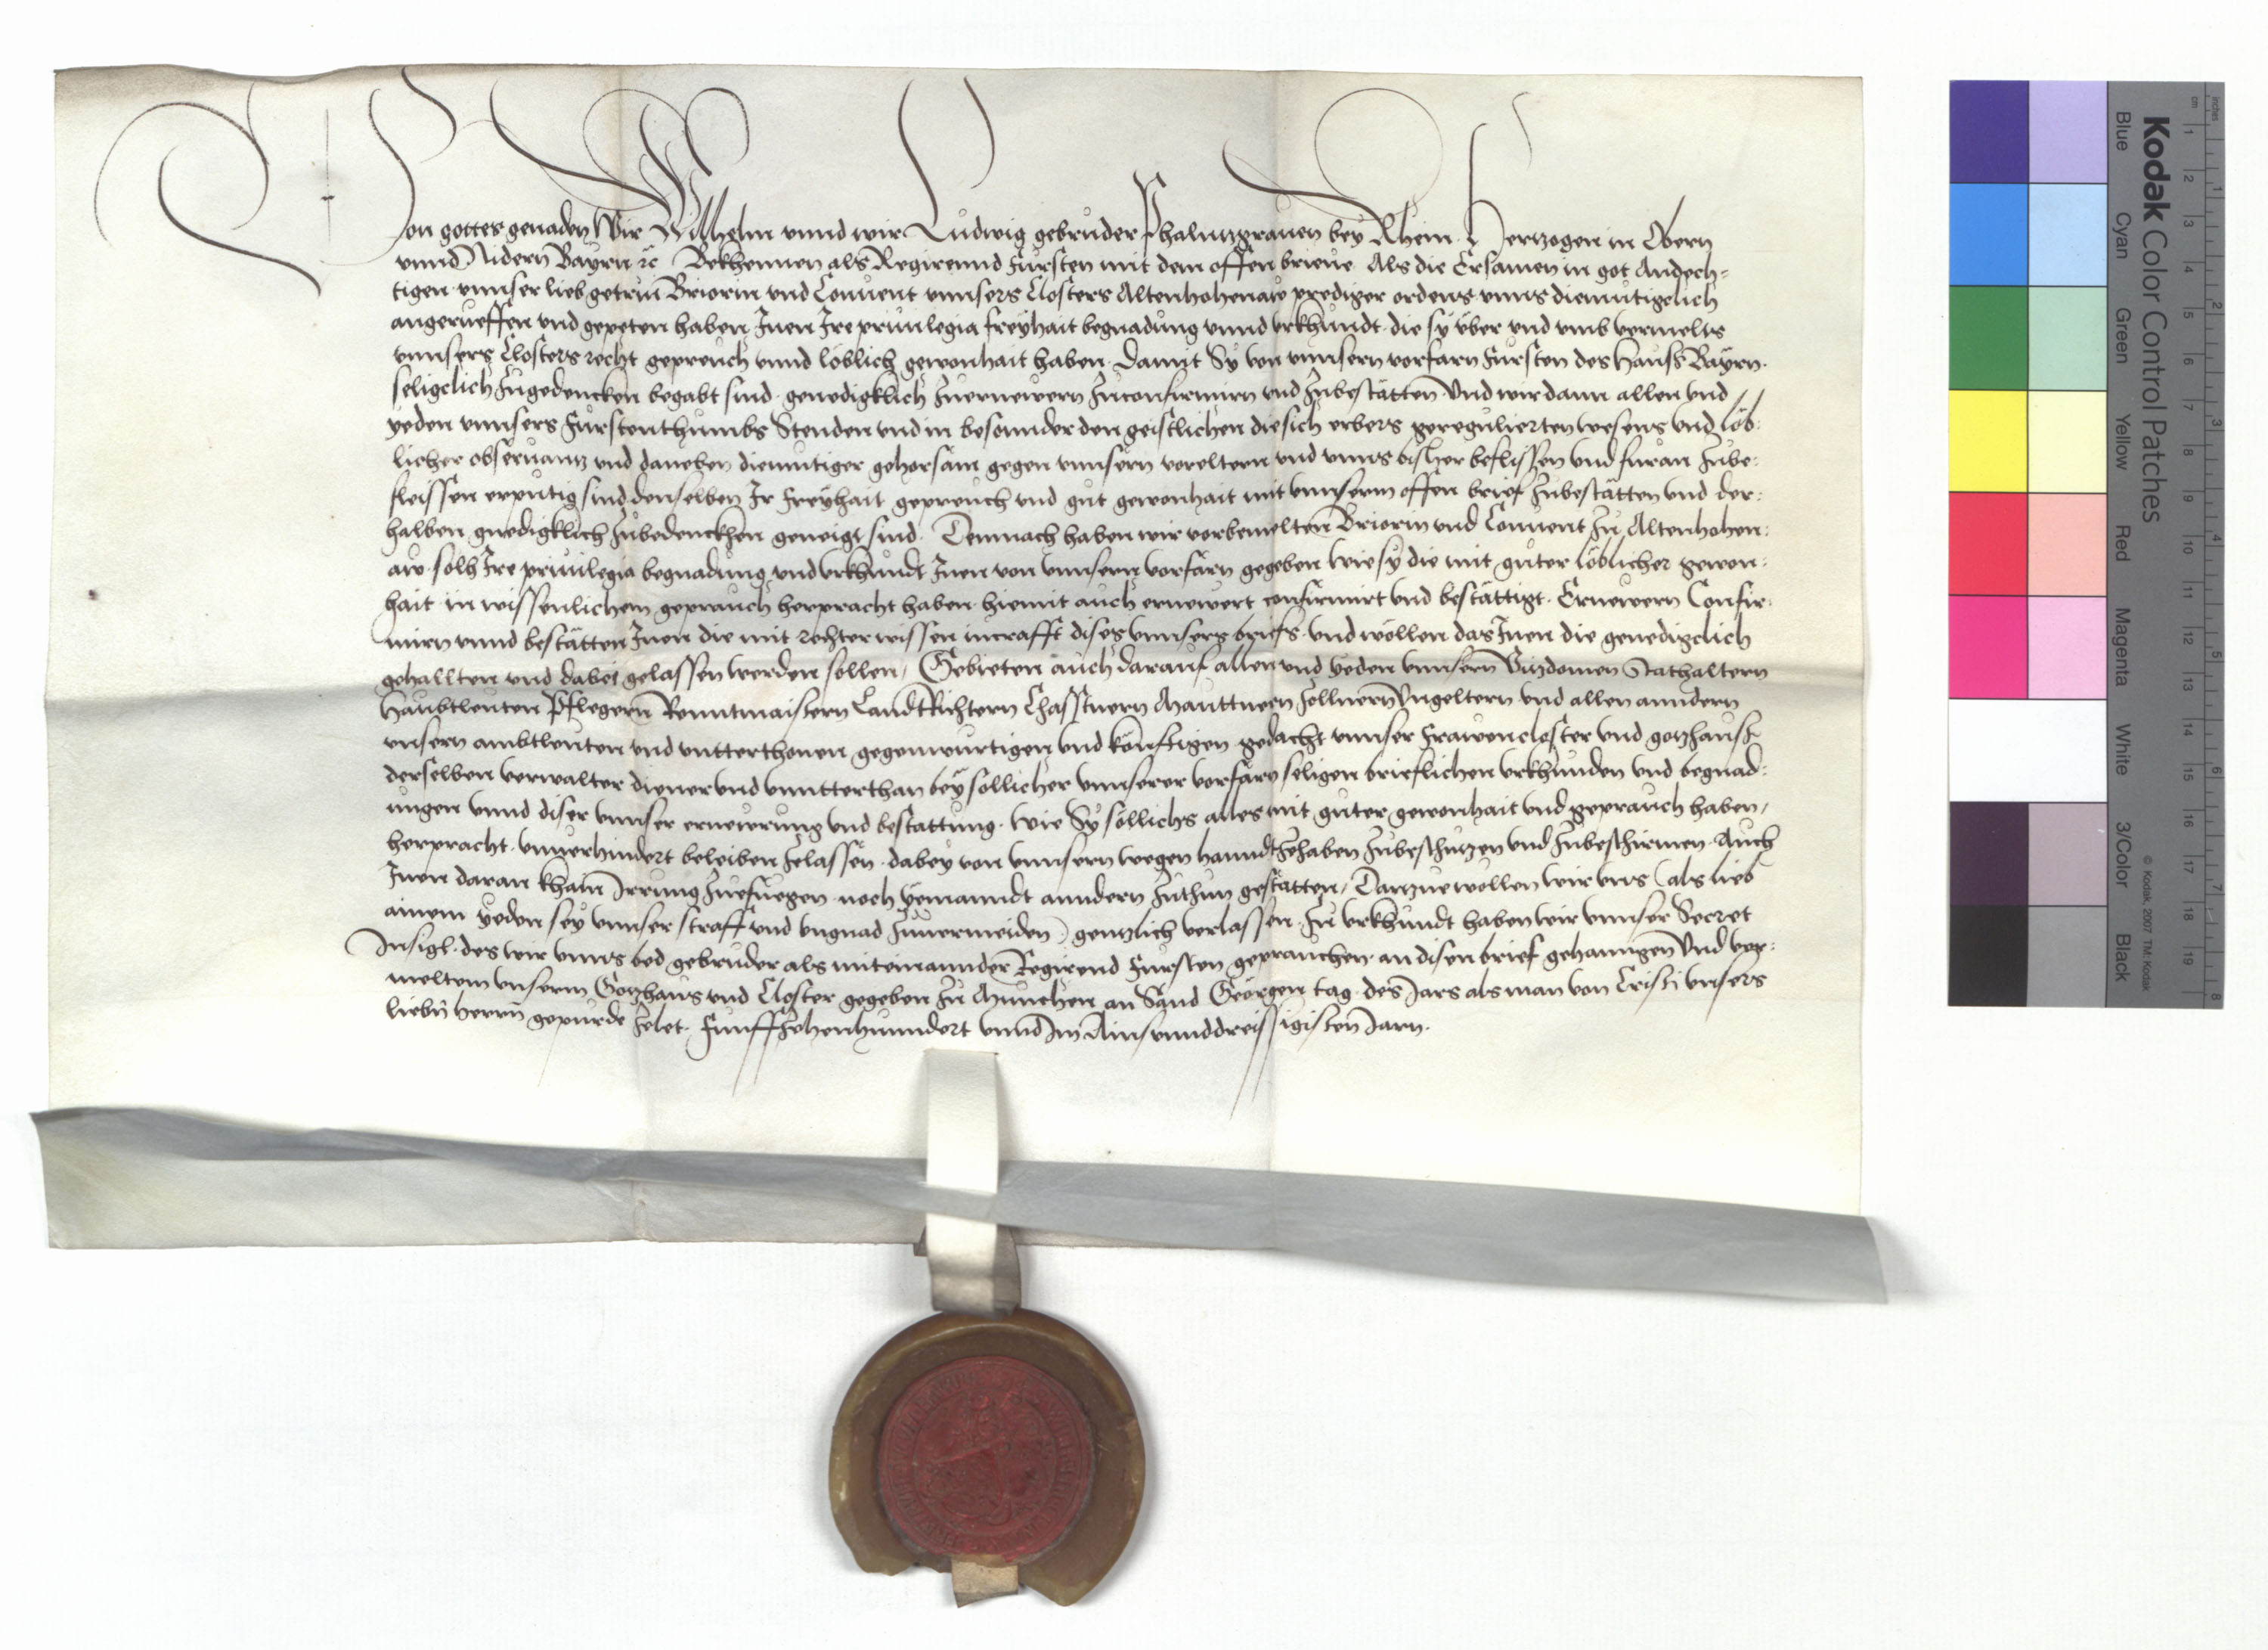 Von gottes genaden Wir Wilhelm vnnd wir Ludwig gebrueder Phalnntzgrauen bey Rhein Hertzogen in Obern
vnnd Nidern Bayrn ꝛc Bekhennen als Regirennd Fürsten mit dem offen brieue Als die Ersamen in got Andech=
tigen vnnser lieb getrew Briorin vnd Conuent vnnsers Closters Altenhohenaw prediger ordens vnns diemutigclich
angerueffen vnd gepeten haben Inen Ire priuilegia freyhait begnadung vnnd vrkhundt die sy über vnd vmb vermelts
vnnsers Closters recht geprauch vnnd löblich gewonhait haben Damit Sy von vnnsern vorfarn Fürsten des Hauss Bayrn
seligclich zugedencken begabt sind genedigklich zuernewern zuconfirmirn vnd zubestätten Vnd wir dann allen vnd
yeden vnnsers Fürstenthumbs Stennden vnd in besonnder den geistlichen die sich erbers geregulierten wesens vnd löb=
licher obseruantz vnd daneben diemutiger gehorsam gegen vnnsern voreltern vnd vnns bisher beflissen vnd furan zube=
fleissen erputig sind denselben Ir Freyhait gepreuch vnd gut gewonhait mit vnnserm offen brief zubestätten vnd der=
halben gnedigklich zubedenckhen geneigt sind. Demnach haben wir vorbemelten Briorin vnd Conuent zu Altenhohen=
aw solh Ire priuilegia begnadung vnd vrkhundt Inen von vnnsern vorfarn gegeben wie sy die mit guter löblicher gewon=
hait in wissenlichem geprauch herpracht haben hiemit auch ernewert confirmirt vnd bestättigt. Ernewern Confir=
mirn vnnd bestätten Inen die mit rechter wissen in crafft dises vnnsers briefs vnd wöllen das Inen die genedigclich
gehallten vnd dabei gelassen werden sollen, Gebieten auch darauf allen vnd yeden vnnsern Vitzdomen Stathaltern
Haubtleuten Pflegern Renntmaistern LandtRichtern Chasstnern Mauttnern zollnern Vngeltern vnd allen anndern
vnsern ambtleuten vnd vntterthonen gegenwurtigen vnd könftigen gedacht vnnser Frawencloster vnd gotzhauss
derselben verwalter diener vnd vnntterthan bey sollicher vnnserer vorfarn seligen brieflichen vrkhunden vnd begnad=
ungen vnnd diser vnnser ernewrung vnd bestattung. wie Sy sollichs alles mit guter gewonhait vnd geprauch haben,
herpracht. vnuerhindert beleiben zelassen dabey von vnnsern wegen hanndtzehaben zubeschutzen vnd zubeschirmen Auch
Inen daran khain Irrung zuefuegen noch yemanndt anndern zuthun gestatten, Dartzue wollen wir vns (als lieb
ainem yeden sey vnnser straff vnd vngnad zuuermeiden) gentzlich verlassen. Zu vrkhundt haben wir vnnser Secret
Insigl. des wir vnns bed gebruder als miteinannder Regirend Fursten geprauchen an disen brief gehanngen Vnd ver=
meltem vnserm Gotzhaus vnd Closter gegeben zu Munchen an Sand Geörgen tag des Jars als man von Cristi vnsers
liebn herrn gepurde zelet. Funffzehenhunndert vnnd Im Ainsvnnddreissigisten Jarn.
Kodak Color Control Patches
Blue Cyan Green Yellow Red Magenta White 3/Color Black
© Kodak, 2007 TM: Kodak
cm 1 2 3 4 5 6 7 8 9 10 11 12 13 14 15 16 17 18 19
inches 1 2 3 4 5 6 7 8